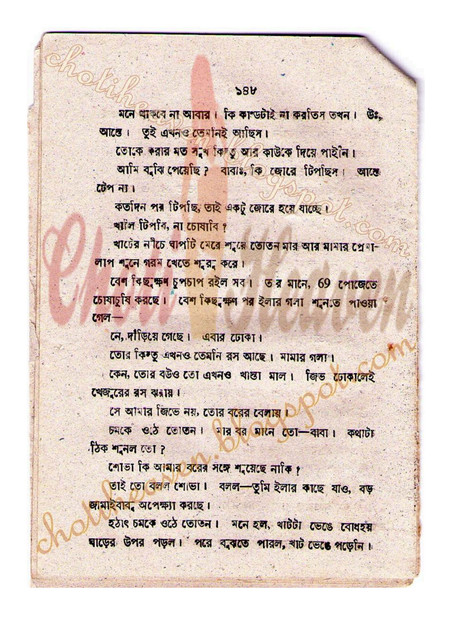 ১৪৮
মনে থাকবে না আবার। কি কাণ্ডটাই না করতিস তখন। উঃ,
আস্তে। তুই এখনও তেমনিই আছিস।
তোকে করার মত সুখ কিন্তু আর কাউকে দিয়ে পাইনি।
আমি বুঝি পেয়েছি? বাবাঃ, কি জোরে টিপছিস। আস্তে
টেপ না।
কতদিন পর টিপছি, তাই একটু জোরে হয়ে যাচ্ছে।
খালি টিপবি, না চোষাবি?
খাটের নীচে ঘাপটি মেরে শুয়ে তোতন মার আর মামার প্রেমা-
লাপ শুনে গরম খেতে শুরু করে।
বেশ কিছুক্ষণ চুপচাপ রইল সব। তার মানে, 69 পোজেতে
চোষাচুষি করছে। বেশ কিছুক্ষণ পর ইলার গলা শুনতে পাওয়া
গেল—
নে, দাঁড়িয়ে গেছে। এবার ঢোকা।
তোর কিন্তু এখনও তেমনি রস আছে। মামার গলা।
কেন, তোর বউও তো এখনও খাস্তা মাল। জিভ ঢোকালেই
খেজুরের রস ঝরায়।
সে আমার জিভে নয়, তোর বরের বেলায়।
চমকে ওঠে তোতন। মার বর মানে তো—বাবা। কথাটা
ঠিক শুনল তো?
শোভা কি আমার বরের সঙ্গে শুয়েছে নাকি?
তাই তো বলল শোভা। বলল—তুমি ইলার কাছে যাও, বড়
জামাইবাবু অপেক্ষা করছে।
হঠাৎ চমকে ওঠে তোতন। মনে হল, খাটটা ভেঙে বোধহয়
ঘাড়ের উপর পড়ল। পরে বুঝতে পারল, খাট ভেঙে পড়েনি।
Choti Heaven
chotiheaven.blogspot.com
chotiheaven.blogspot.com